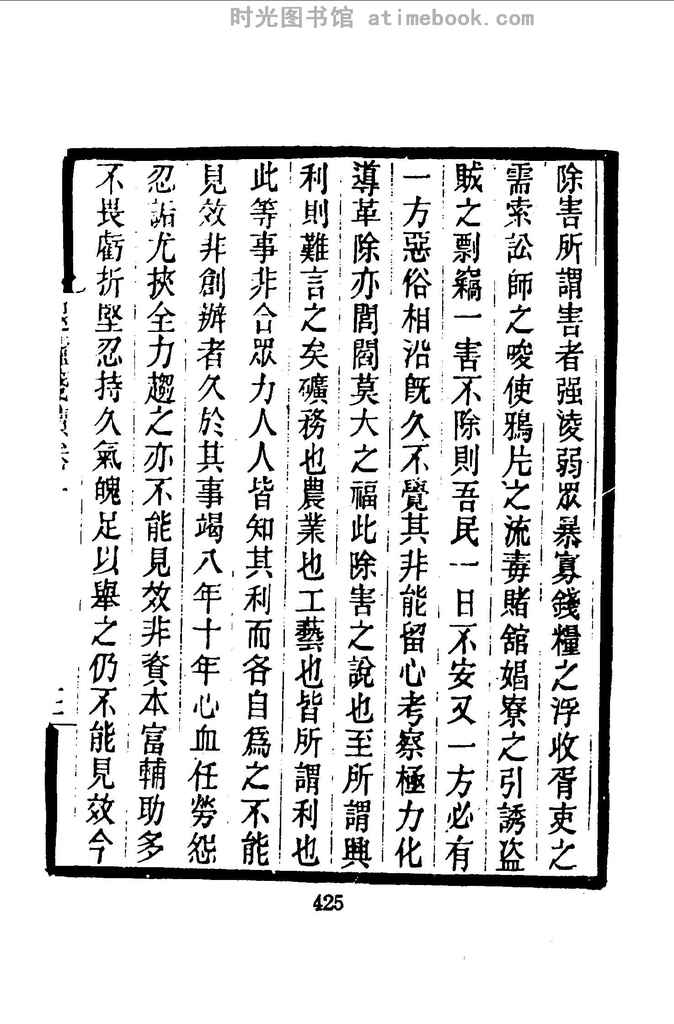 时光图书馆 atimebook.com
除害所謂害者强淩弱眾暴寡錢糧之浮收胥吏之
需索訟師之唆使鴉片之流毒賭舘娼寮之引誘盜
賊之剽竊一害不除則吾民一日不安又一方必有
一方惡俗相沿旣久不覺其非能留心考察極力化
導革除亦閭閻莫大之福此除害之說也至所謂興
利則難言之矣礦務也農業也工藝也皆所謂利也
此等事非合眾力人人皆知其利而各自為之不能
見效非創辦者久於其事竭八年十年心血任勞怨
忍詬尤挾全力趨之亦不能見效非資本富輔助多
不畏虧折堅忍持久氣魄足以舉之仍不能見效今
425